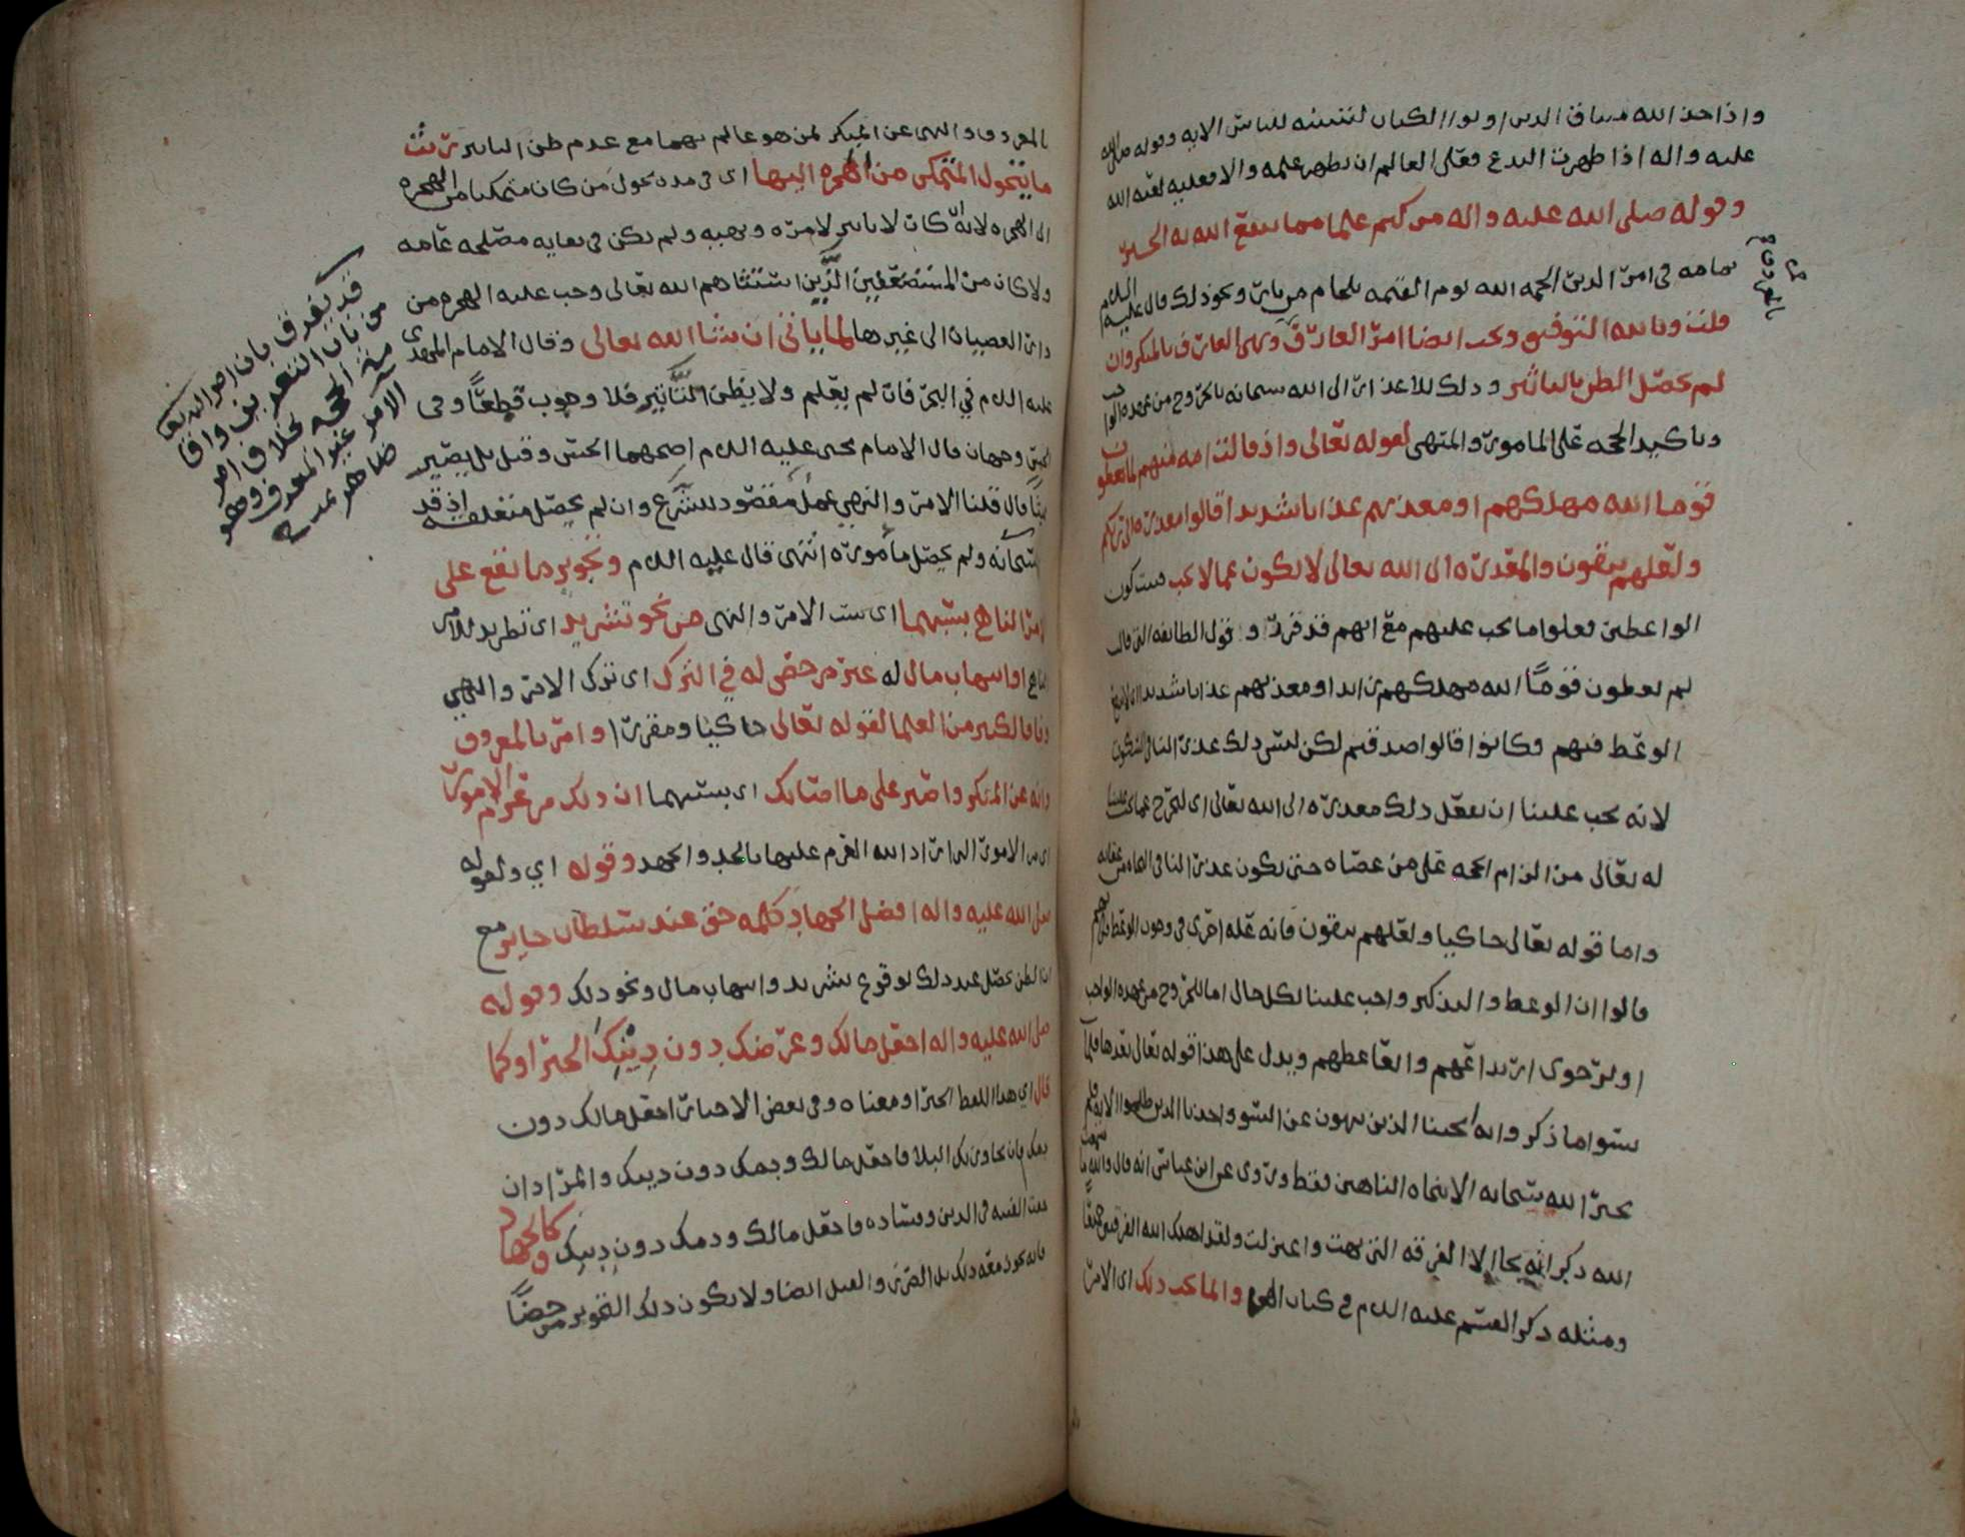 واذ اخذ الله ميثاق الذين اوتوا الكتاب لتبيننه للناس الايه وقوله صلى الله
عليه واله اذا ظهرت البدع فعلى العالم ان يظهر علمه والا فعليه لعنة الله
وقوله صلى الله عليه واله من كتم علما مما ينفع الله به الخبر
تمامه في امر الدين الجمه الله يوم القيمه بلجام من نار ونحو ذلك قال عليه السلام
قلت وبالله التوفيق ويجب ايضا امر العارف ونهي العارف بالمنكر وان
لم يحصل الظن بالتاثير وذلك للاعذار الى الله سبحانه بالخروج من عهدة الواجب
وتاكيد الحجه على المامور والمنهي لقوله تعالى واذ قالت امة منهم لم تعظون
قوما الله مهلكهم او معذبهم عذابا شديدا قالوا معذرة الى ربكم
ولعلهم يتقون والمعذرة الى الله تعالى لا تكون عما لا يجب فيتكون
الواعظين فعلوا ما يجب عليهم مع انهم قد قرروا قول الطائفه التي قالت
لم تعظون قوما الله مهلكهم او معذبهم عذابا شديدا اي لاينفع
الوعظ فيهم وكانوا قالوا صدقتم لكن ليس ذلك عذرا لنا في السكوت
لانه يجب علينا ان نفعل ذلك معذرة الى الله تعالى اي لنخرج عما يجب علينا
له تعالى من الزام الحجه على من عصاه حتى يكون عذرا لنا
واما قوله تعالى حاكيا ولعلهم يتقون فانه علة اخرى في وجوب الوعظ
قالوا ان الوعظ والتذكير واجب علينا لكل حال اما للخروج من عهدة الواجب
او لرجوى ارتداعهم واتعاظهم ويدل على هذا قوله تعالى بعدها فلما
نسوا ما ذكروا به انجينا الذين ينهون عن السوء واخذنا الذين ظلموا الايه فلم
يخبر الله سبحانه الا بنجاة الناهين فقط وروي عن ابن عباس انه قال والله ما سمعت
الله ذكر انه نجا الا الفرقه التي نهت واعتزلت ولقد اهلك الله الفريقين جميعا
ومثله ذكر القسم عليه السلام في كتاب الهجرة وانما يجب ذلك اي الامر
بالمعروف والنهي عن المنكر لمن هو عالم بهما مع عدم ظن التاثير ريث
ما يتحول المتمكن من الهجره اليها اي في مدة تحول من كان متمكنا من الهجره
الى الهجره لانه كان لا تاثير لامره ونهيه ولم يكن في بقايه مصلحه عامه
ولا كان من المستضعفين الذين استثناهم الله تعالى وجب عليه الهجره من
دار العصيان الى غيرها لما ياتي ان شا الله تعالى وقال الامام المهدي
عليه السلام في البحر فان لم يعلم ولا يظن التاثير فلا وجوب قطعا وفي
الحسن وجهان قال الامام يحيى عليه السلام اصحهما الحسن وقيل بل يصير
عبثا قال قلنا الامر والنهي عمل مقصود للشرع وان لم يحصل متعلقه اذ قد
امر سبحانه ولم يحصل ماموره انتهى قال عليه السلام وتجويز ما يقع على
الامر الناهي بسببهما اي بسبب الامر والنهي من نحو تشريد اي تطريد للامر
الناهي او انتهاب مال له غير مرخص له في الترك اي ترك الامر والنهي
وفاقا لكثير من العلما لقوله تعالى حاكيا ومقررا وامر بالمعروف
وانه عن المنكر واصبر على ما اصابك اي بسببهما ان ذلك من عزم الامور
اي من الامور التي اراد الله العزم عليها بالجد والجهد وقوله اي ولقوله
صلى الله عليه واله افضل الجهاد كلمه حق عند سلطان جاير مع
ان الظن يحصل عند ذلك لوقوع تشريد وانتهاب مال ونحو ذلك وقوله
صلى الله عليه واله اجعل مالك وعرضك دون دينك الخبر او كما
قال اي هذا اللفظ الخبر او معناه وفي بعض الاخبار اجعل مالك دون
دمك فان تجاوز بك البلا فاجعل مالك ودمك دون دينك والمراد ان
خفت الفتنه في الدين وفساده فاجعل مالك ودمك دون دينك وكالجهاد
فانه يجوز معه ذلك بل الضرب والقتل ايضا ولا يكون ذلك التجويز مرخصا
قد يفرق بان امر الله تعالى
من باب التعريف واقا
مة الحجه بخلاف امر
الامر غير المعروف وهو
ظاهر